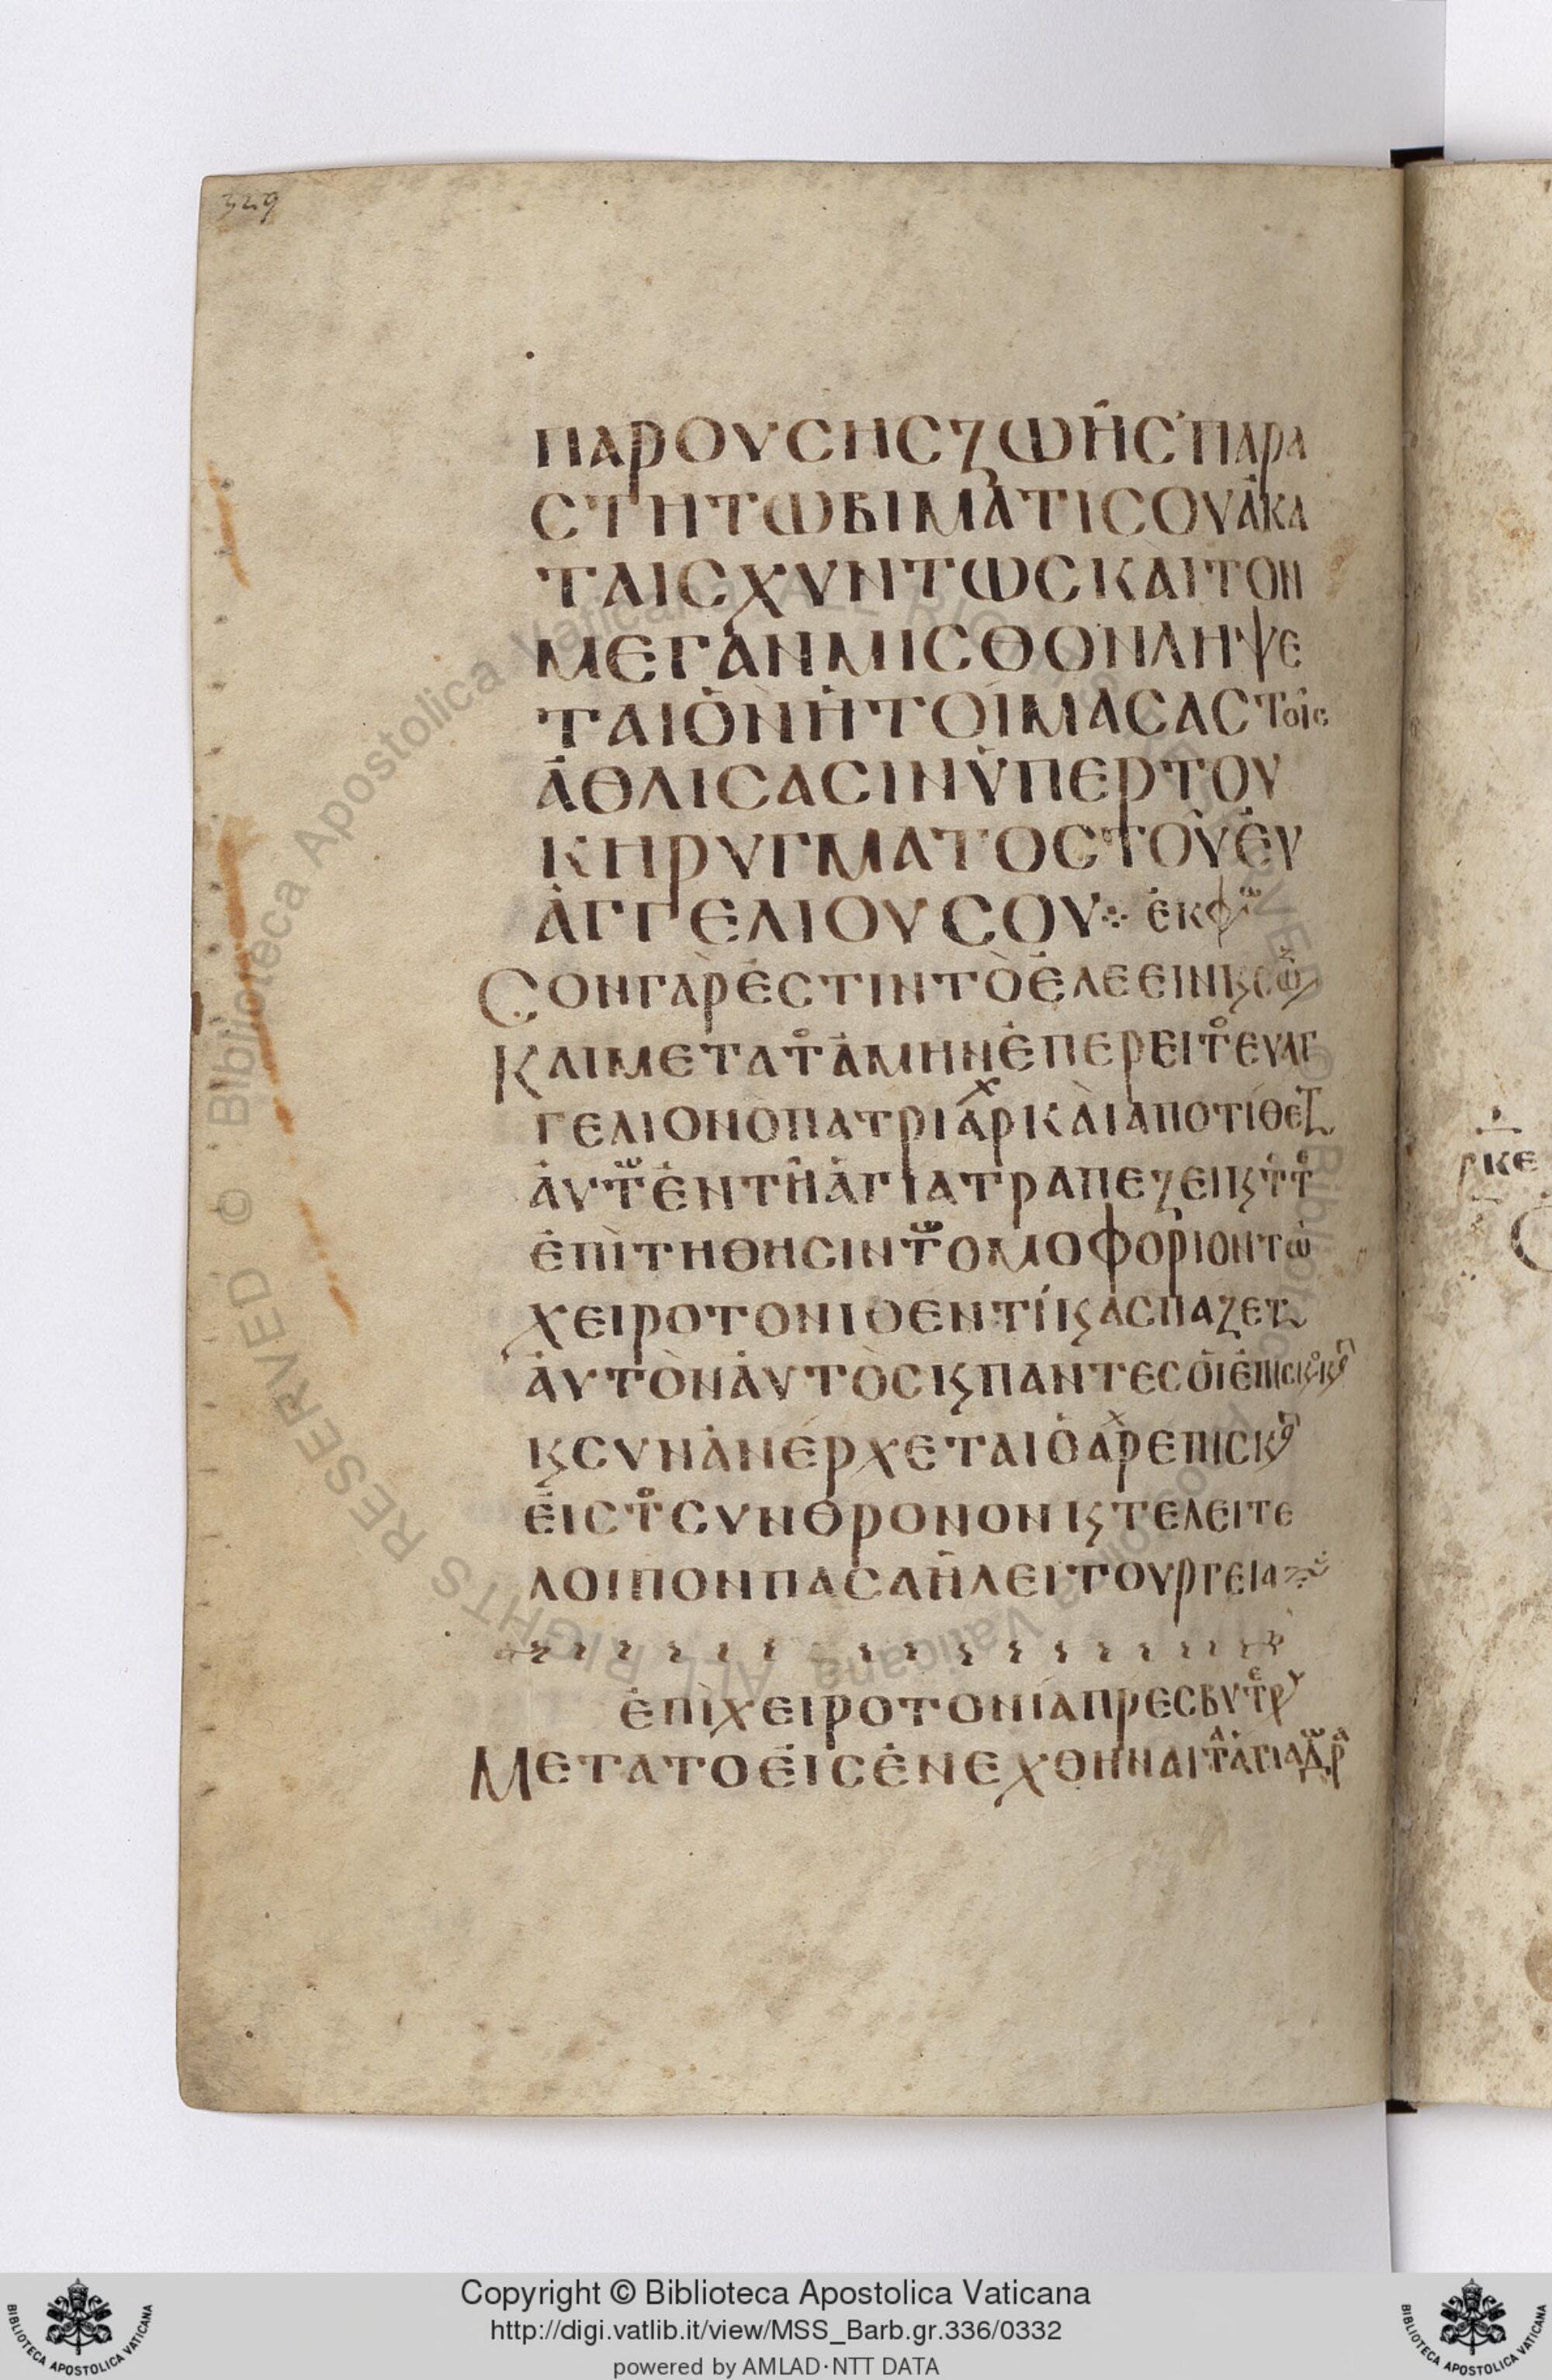 329
ΠΑΡΟΥСΗСΖΩΗ͂С ΠΑΡΑ
СΤΗΤΩΒΙΜΑΤΙСΟΥἈΚΑ
ΤΑΙСΧΥΝΤΩСΚΑΙΤΟΝ
ΜΕΓΑΝΜΙСΘΟΝΛΗΨΕ
ΤΑΙὉΝΗΤΟΙΜΑСΑСΤΟΙС
ἈΘΛΙСΑСΙΝΥΠΕΡΤΟΥ
ΚΗΡΥΓΜΑΤΟСΤΟΥΕΥ
ἈΓΓΕΛΙΟΥСΟΥ⁘ ἐκφω
СΟΝΓΑΡΕСΤΙΝΤΟΕΛΕΕΙΝϗСΩ
ΚΑΙΜΕΤΑΤοΑΜΗΝΕΠΕΡΕΙΤοΕΥΑΓ
ΓΕΛΙΟΝΟΠΑΤΡΙΑΡχΚΑΙΑΠΟΤΙΘΕΤ
ΑΥΤωΕΝΤΗΑΓΙΑΤΡΑΠΕΖΕΙϗΤ Το
ΕΠΙΤΗΘΗСΙΝΤωΟΜΟΦΟΡΙΟΝΤΩ
ΧΕΙΡΟΤΟΝΙΘΕΝΤΙϗΑСΠΑΖΕΤ
ΑΥΤΟΝΑΥΤΟСϗΠΑΝΤΕСΟΙΕΠΙСΚοΚ
ϗСΥΝΑΝΕΡΧΕΤΑΙΟΑΡχΕΠΙСΚ
ΕΙСΤοСΥΝΘΡΟΝΟΝϗΤΕΛΕΙΤΕ
ΛΟΙΠΟΝΠΑСΑΗΛΕΙΤΟΥΡΓΕΙΑ
ΕΠΙΧΕΙΡΟΤΟΝΙΑΠΡΕСΒΥΤερΥ
ΜΕΤΑΤΟΕΙСΕΝΕΧΘΗΝΑΙΤαΑΓΙΑΔωΡα
ΡΚΕ
Copyright © Biblioteca Apostolica Vaticana
http://digi.vatlib.it/view/MSS_Barb.gr.336/0332
powered by AMLAD·NTT DATA
BIBLIOTECA APOSTOLICA VATICANA
BIBLIOTECA APOSTOLICA VATICANA